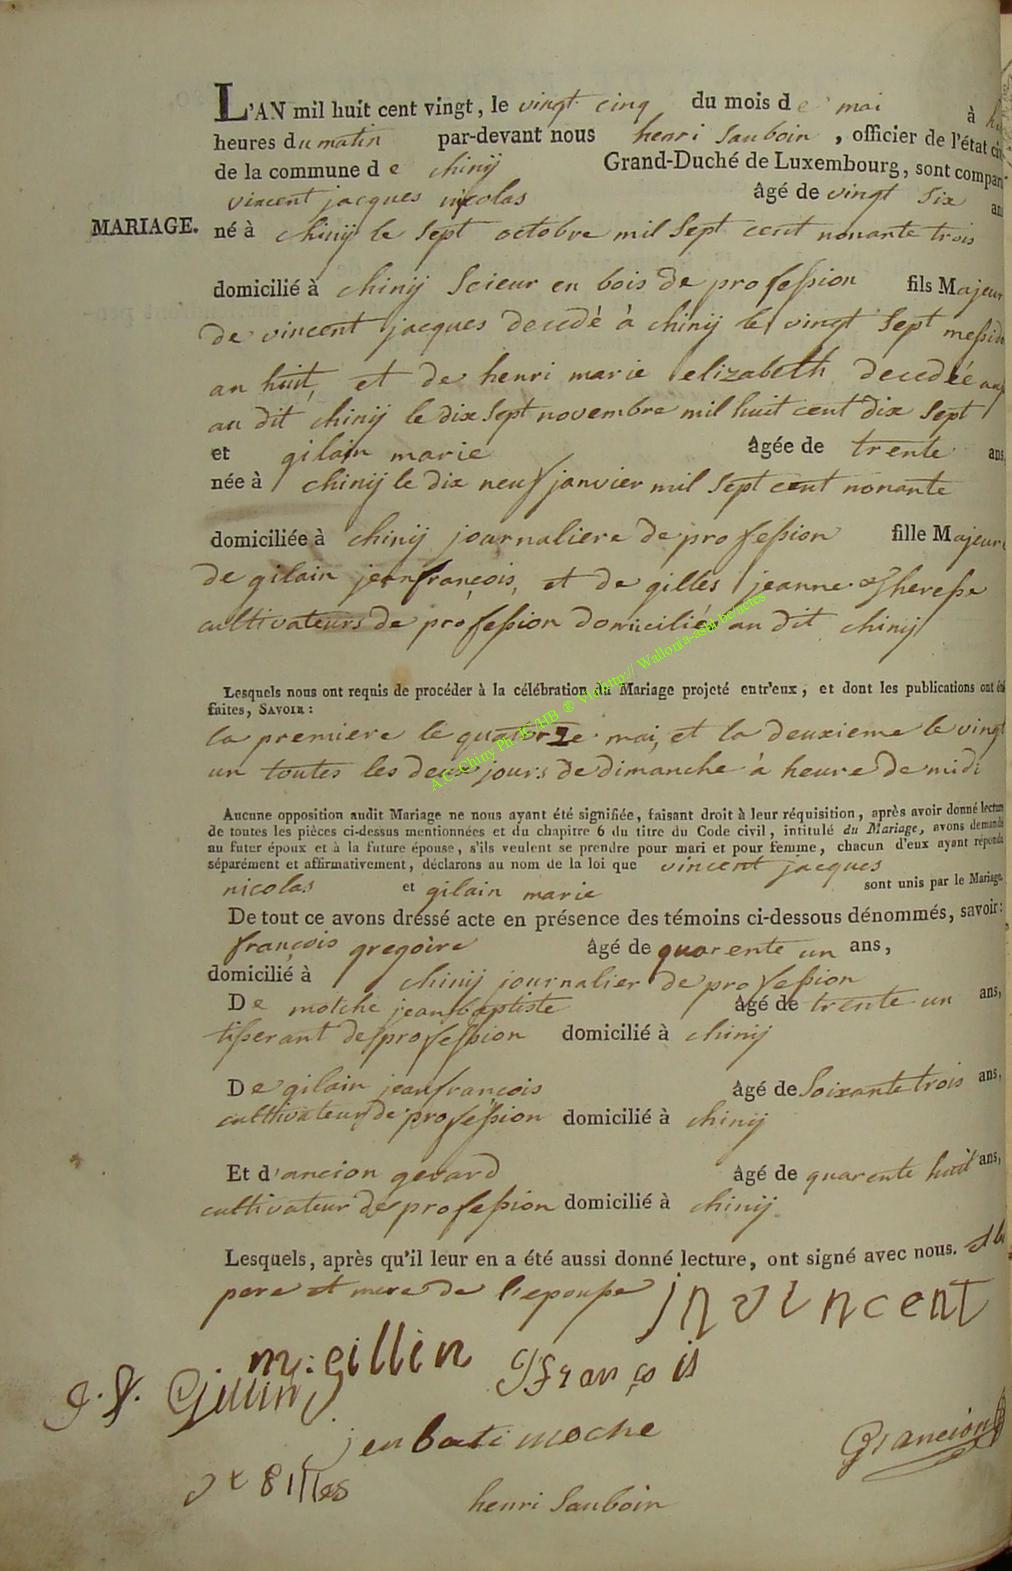 L'AN mil huit cent vingt, le vingt cinq du mois de mai à
heures du matin par-devant nous henri Sauboin, officier de l'état
de la commune de chinij Grand-Duché de Luxembourg, sont compar
vincent jacques nicolas âgé de vingt Six ans
MARIAGE. né à chinij le Sept octobre mil Sept cent nonante trois
domicilié à chinij Scieur en bois de profession fils Majeur
de vincent jacques decedé à chinij le vingt Sept messid
an huit, et de henri marie elizabeth decedée
au dit chinij le dix Sept novembre mil huit cent dix Sept
et gilain marie âgée de trente ans,
née à chinij le dix neuf janvier mil Sept cent nonante
domiciliée à chinij journaliere de profession fille Majeure
de gilain jeanfrançois, et de gilles jeanne Therese
cultivateurs de profession domiciliés au dit chinij
Lesquels nous ont requis de procéder à la célébration du Mariage projeté entr'eux, et dont les publications ont été
faites, SAVOIR :
la premiere le quatorze mai, et la deuxieme le vingt
un toutes les deux jours de dimanche à heure de midi
A.C. Chiny Ph. JC/HB ® Vld http:// Wallonia-asbl.be/actes
Aucune opposition audit Mariage ne nous ayant été signifiée, faisant droit à leur réquisition, après avoir donné lecture
de toutes les pièces ci-dessus mentionnées et du chapitre 6 du titre du Code civil, intitulé du Mariage, avons demandé
au futur époux et à la future épouse, s'ils veulent se prendre pour mari et pour femme, chacun d'eux ayant répondu
séparément et affirmativement, déclarons au nom de la loi que vincent jacques
nicolas et gilain marie sont unis par le Mariage.
De tout ce avons dressé acte en présence des témoins ci-dessous dénommés, savoir:
françois gregoire âgé de quarente un ans,
domicilié à chinij journalier de profession
De motché jean baptiste âgé de trente un ans,
tisserant de profession domicilié à chinij
De gilain jeanfrançois âgé de Soixante trois ans,
cultivateur de profession domicilié à chinij
Et d'ancion gerard âgé de quarente huit ans,
cultivateur de profession domicilié à chinij
Lesquels, après qu'il leur en a été aussi donné lecture, ont signé avec nous. et le
pere et mere de l'epouse jn vincent
m: gillin
J. f. Gillin françois
jen bati moche G ancion
gilles
henri Sauboin